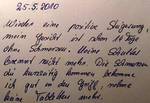 25.5.2010
Wieder eine positive Steigerung,
mein Gesicht ist schon 10 Tage
ohne Schmerzen. Meine Schulter
brennt nicht mehr. Die Schmerzen
die kurzzeitig kommen bekomme
ich gut in den Griff, nehme
keine Tabletten mehr.